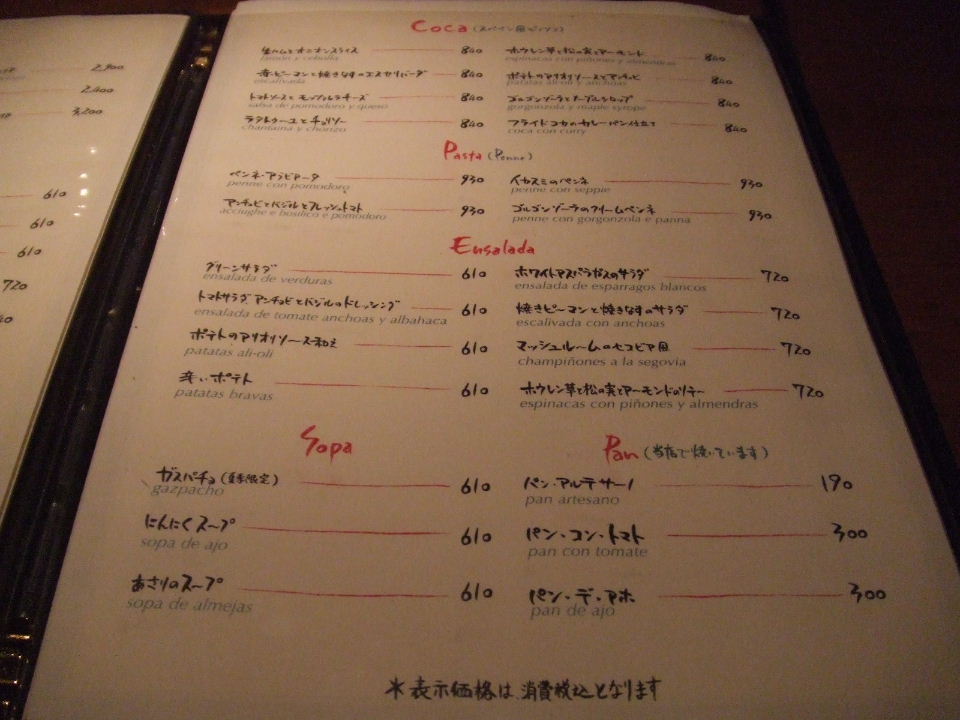 2,900
2,400
3,200
610
610
610
720
Coca (スペイン風ピッツァ)
生ハムとオニオンスライス 840
jamón y cebolla
赤ピーマンと焼きなすのエスカリバーダ 840
escalivada
トマトソースとモッツァレラチーズ 840
salsa de pomodoro y queso
ラタトゥーユとチョリソー 840
chanfaina y chorizo
ホウレン草と松の実とアーモンド 840
espinacas con piñones y almendras
ポテトのアリオリソースとアンチョビ 840
patatas ali-oli y anchoas
ゴルゴンゾーラとメープルシロップ 840
gorgonzola y maple syrope
フライドコカのカレーパン仕立て 840
coca con curry
Pasta (Penne)
ペンネ・アラビアータ 930
penne con pomodoro
アンチョビとバジルとフレッシュトマト 930
acciughe e bosilico e pomodoro
イカスミのペンネ 930
penne con seppie
ゴルゴンゾーラのクリームペンネ 930
penne con gorgonzola e panna
Ensalada
グリーンサラダ 610
ensalada de verduras
トマトサラダ アンチョビとバジルのドレッシング 610
ensalada de tomate anchoas y albahaca
ポテトのアリオリソース和え 610
patatas ali-oli
辛いポテト 610
patatas bravas
ホワイトアスパラガスのサラダ 720
ensalada de esparragos blancos
焼きピーマンと焼きなすのサラダ 720
escalivada con anchoas
マッシュルームのセゴビア風 720
champiñones a la segovia
ホウレン草と松の実とアーモンドのソテー 720
espinacas con piñones y almendras
Sopa
ガスパチョ (夏季限定) 610
gazpacho
にんにくスープ 610
sopa de ajo
あさりのスープ 610
sopa de almejas
Pan (当店で焼いています)
パン・アルテサーノ 190
pan artesano
パン・コン・トマト 300
pan con tomate
パン・デ・アホ 300
pan de ajo
＊表示価格は、消費税込となります